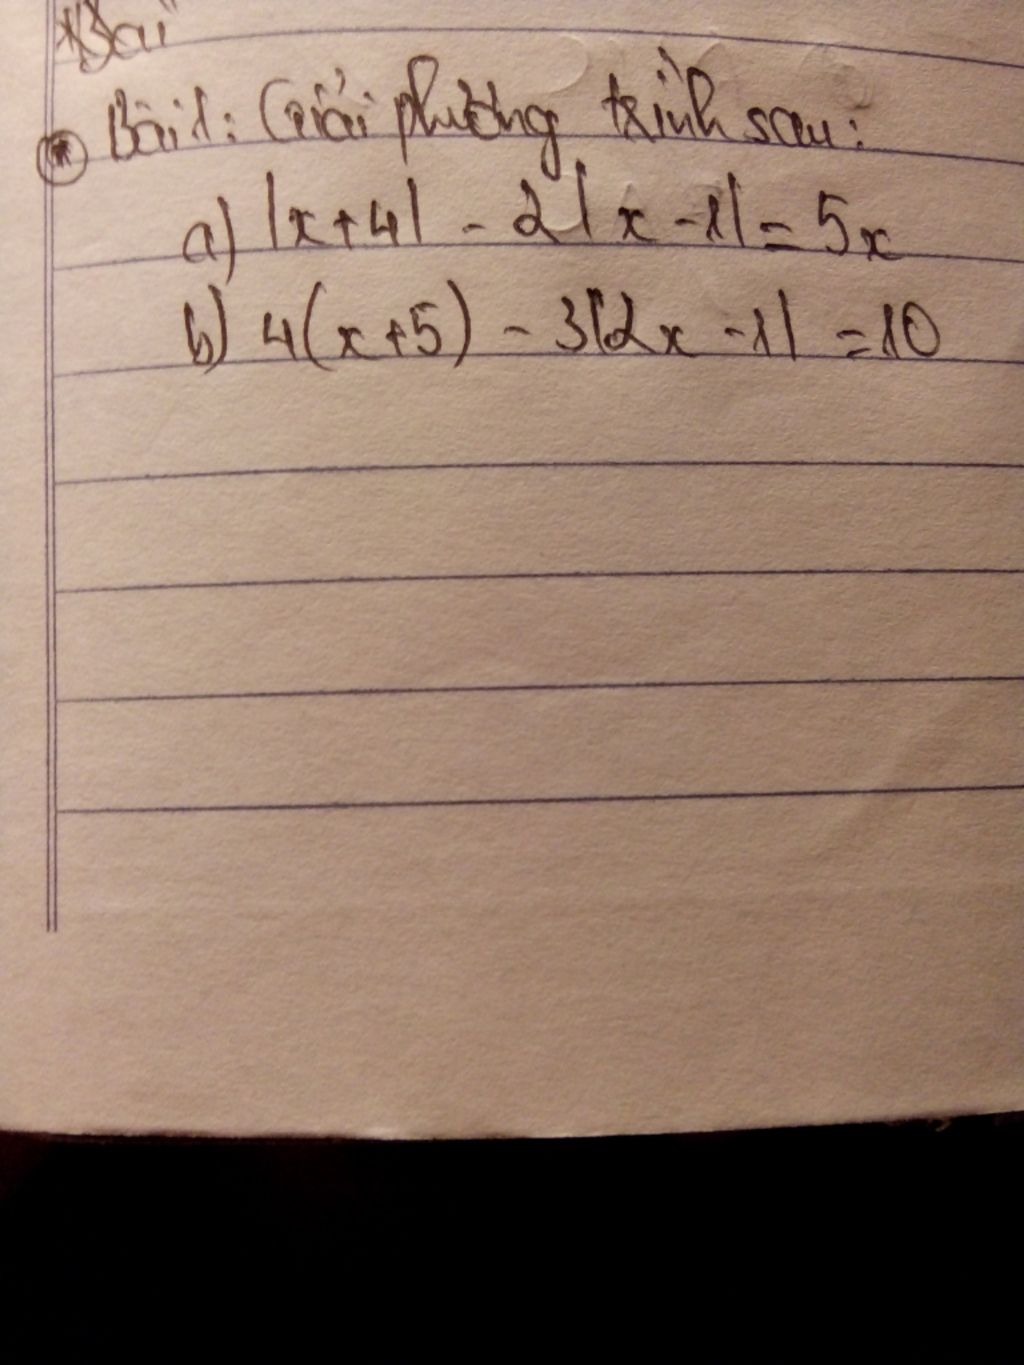 Bài 1: Giải phương trình sau:
a) |x+4| - 2|x-1| = 5x
b) 4(x+5) - 3|2x-1| = 10